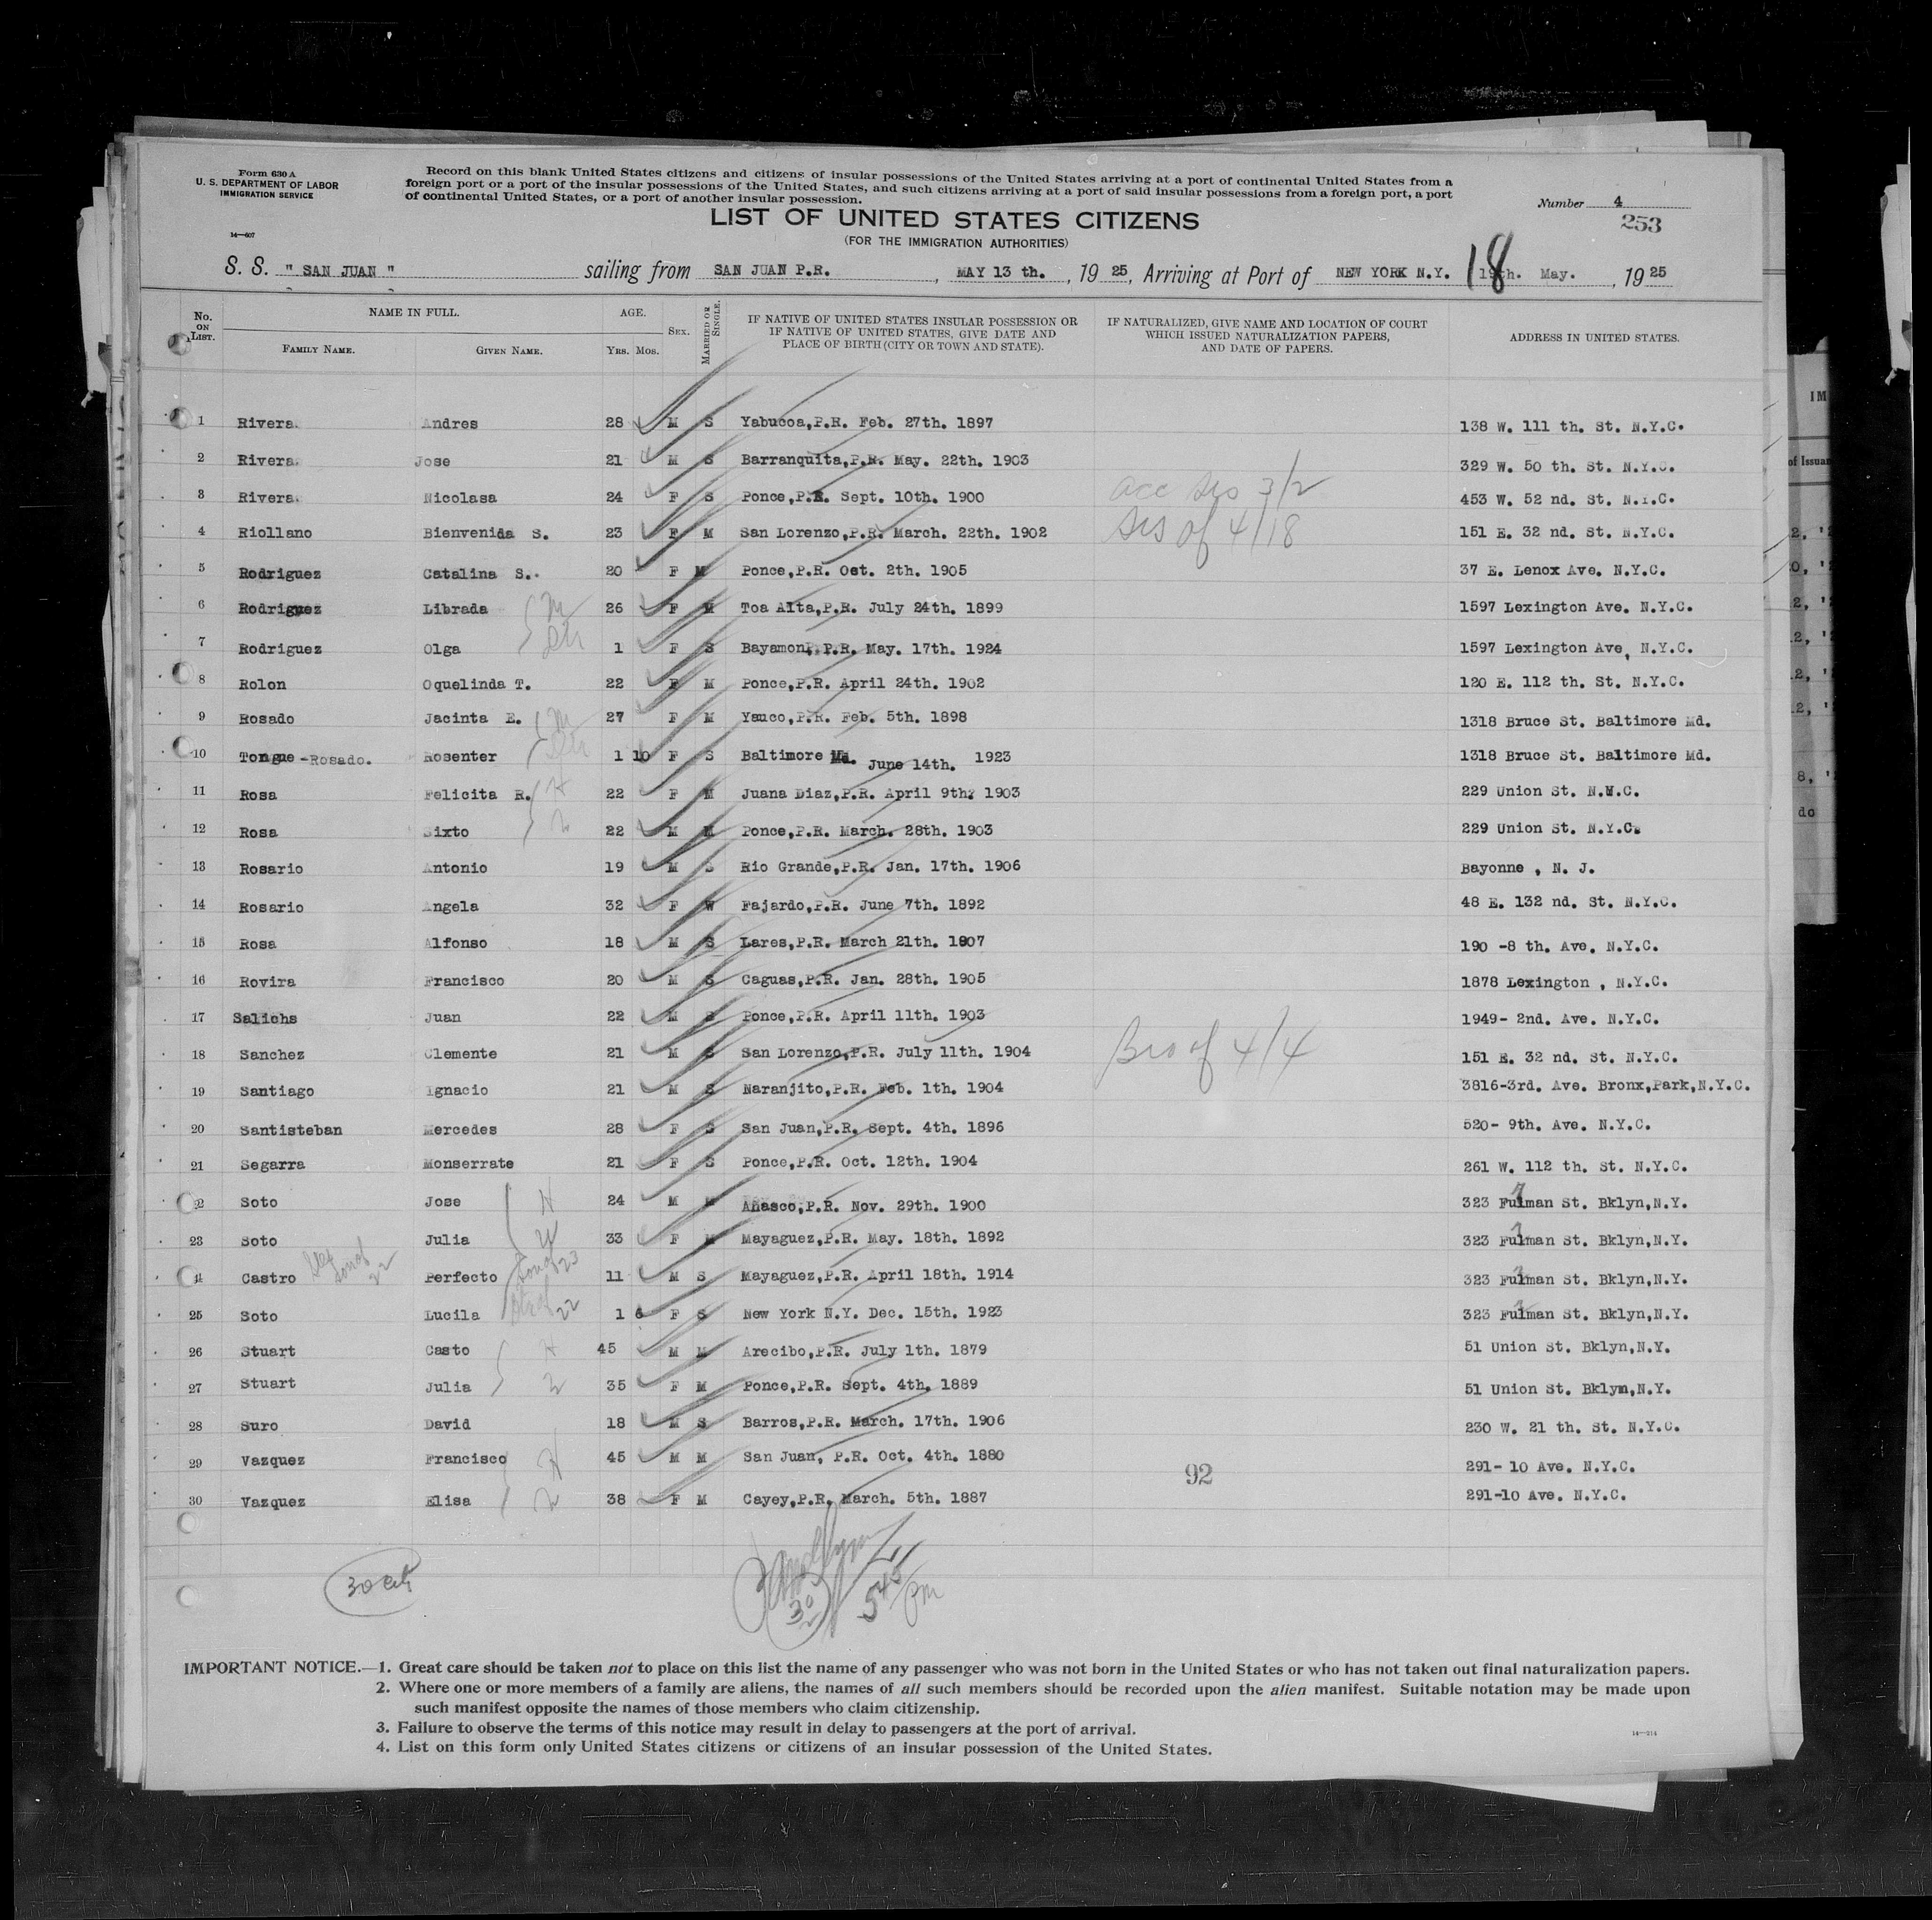 Form 630 A
U. S. DEPARTMENT OF LABOR
IMMIGRATION SERVICE
14—607
Record on this blank United States citizens and citizens of insular possessions of the United States arriving at a port of continental United States from a
foreign port or a port of the insular possessions of the United States, and such citizens arriving at a port of said insular possessions from a foreign port, a port
of continental United States, or a port of another insular possession.
LIST OF UNITED STATES CITIZENS
(FOR THE IMMIGRATION AUTHORITIES)
Number 4
253
S. S. " SAN JUAN " sailing from SAN JUAN P.R. , MAY 13 th. , 19 25, Arriving at Port of NEW YORK N.Y. 18 19th. May. , 19 25
No. ON LIST. NAME IN FULL. FAMILY NAME. GIVEN NAME. AGE. YRS. MOS. SEX. MARRIED OR SINGLE. IF NATIVE OF UNITED STATES INSULAR POSSESSION OR IF NATIVE OF UNITED STATES, GIVE DATE AND PLACE OF BIRTH (CITY OR TOWN AND STATE). IF NATURALIZED, GIVE NAME AND LOCATION OF COURT WHICH ISSUED NATURALIZATION PAPERS, AND DATE OF PAPERS. ADDRESS IN UNITED STATES.
1 Rivera Andres 28 M S Yabucoa,P.R. Feb. 27th. 1897 138 W. 111 th. St. N.Y.C.
2 Rivera Jose 21 M S Barranquita,P.R. May. 22th. 1903 329 W. 50 th. St. N.Y.C.
3 Rivera Nicolasa 24 F S Ponce,P.R. Sept. 10th. 1900 acc sis 3/2 453 W. 52 nd. St. N.Y.C.
4 Riollano Bienvenida S. 23 F M San Lorenzo,P.R. March. 22th. 1902 sis of 4/18 151 E. 32 nd. St. N.Y.C.
5 Rodriguez Catalina S. 20 F M Ponce,P.R. Oct. 2th. 1905 37 E. Lenox Ave. N.Y.C.
6 Rodriguez Librada M 26 F M Toa Alta,P.R. July 24th. 1899 1597 Lexington Ave. N.Y.C.
7 Rodriguez Olga 1 F S Bayamon,P.R. May. 17th. 1924 1597 Lexington Ave, N.Y.C.
8 Rolon Oquelinda T. 22 F M Ponce,P.R. April 24th. 1902 120 E. 112 th. St. N.Y.C.
9 Rosado Jacinta E. M 27 F M Yauco,P.R. Feb. 5th. 1898 1318 Bruce St. Baltimore Md.
10 Tongue-Rosado. Rosenter 1 10 F S Baltimore Md. June 14th. 1923 1318 Bruce St. Baltimore Md.
11 Rosa Felicita R. 22 F M Juana Diaz,P.R. April 9th. 1903 229 Union St. N.Y.C.
12 Rosa Sixto 22 M M Ponce,P.R. March. 28th. 1903 229 Union St. N.Y.C.
13 Rosario Antonio 19 M S Rio Grande,P.R. Jan. 17th. 1906 Bayonne , N. J.
14 Rosario Angela 32 F W Fajardo,P.R. June 7th. 1892 48 E. 132 nd. St. N.Y.C.
15 Rosa Alfonso 18 M S Lares,P.R. March 21th. 1907 190 -8 th. Ave. N.Y.C.
16 Rovira Francisco 20 M S Caguas,P.R. Jan. 28th. 1905 1878 Lexington , N.Y.C.
17 Salichs Juan 22 M S Ponce,P.R. April 11th. 1903 1949- 2nd. Ave. N.Y.C.
18 Sanchez Clemente 21 M S San Lorenzo,P.R. July 11th. 1904 Bro of 4/4 151 E. 32 nd. St. N.Y.C.
19 Santiago Ignacio 21 M S Naranjito,P.R. Feb. 1th. 1904 3816-3rd. Ave. Bronx,Park,N.Y.C.
20 Santisteban Mercedes 28 F S San Juan,P.R. Sept. 4th. 1896 520- 9th. Ave. N.Y.C.
21 Segarra Monserrate 21 F S Ponce,P.R. Oct. 12th. 1904 261 W. 112 th. St. N.Y.C.
22 Soto Jose H 24 M M Añasco,P.R. Nov. 29th. 1900 323 Fulman St. Bklyn,N.Y.
23 Soto Julia W 33 F M Mayaguez,P.R. May. 18th. 1892 323 Fulman St. Bklyn,N.Y.
24 Castro Step son of 22 Perfecto son of 23 11 M S Mayaguez,P.R. April 18th. 1914 323 Fulman St. Bklyn,N.Y.
25 Soto Lucila 22 1 6 F S New York N.Y. Dec. 15th. 1923 323 Fulman St. Bklyn,N.Y.
26 Stuart Casto H 45 M M Arecibo,P.R. July 1th. 1879 51 Union St. Bklyn,N.Y.
27 Stuart Julia 35 F M Ponce,P.R. Sept. 4th. 1889 51 Union St. Bklyn,N.Y.
28 Suro David 18 M S Barros,P.R. March. 17th. 1906 230 W. 21 th. St. N.Y.C.
29 Vazquez Francisco H 45 M M San Juan, P.R. Oct. 4th. 1880 291- 10 Ave. N.Y.C.
92
30 Vazquez Elisa 38 F M Cayey,P.R. March. 5th. 1887 291-10 Ave. N.Y.C.
30
30
545 PM
IMPORTANT NOTICE.—1. Great care should be taken not to place on this list the name of any passenger who was not born in the United States or who has not taken out final naturalization papers.
2. Where one or more members of a family are aliens, the names of all such members should be recorded upon the alien manifest. Suitable notation may be made upon
such manifest opposite the names of those members who claim citizenship.
3. Failure to observe the terms of this notice may result in delay to passengers at the port of arrival.
4. List on this form only United States citizens or citizens of an insular possession of the United States.
14—214
IM
of Issuan
do